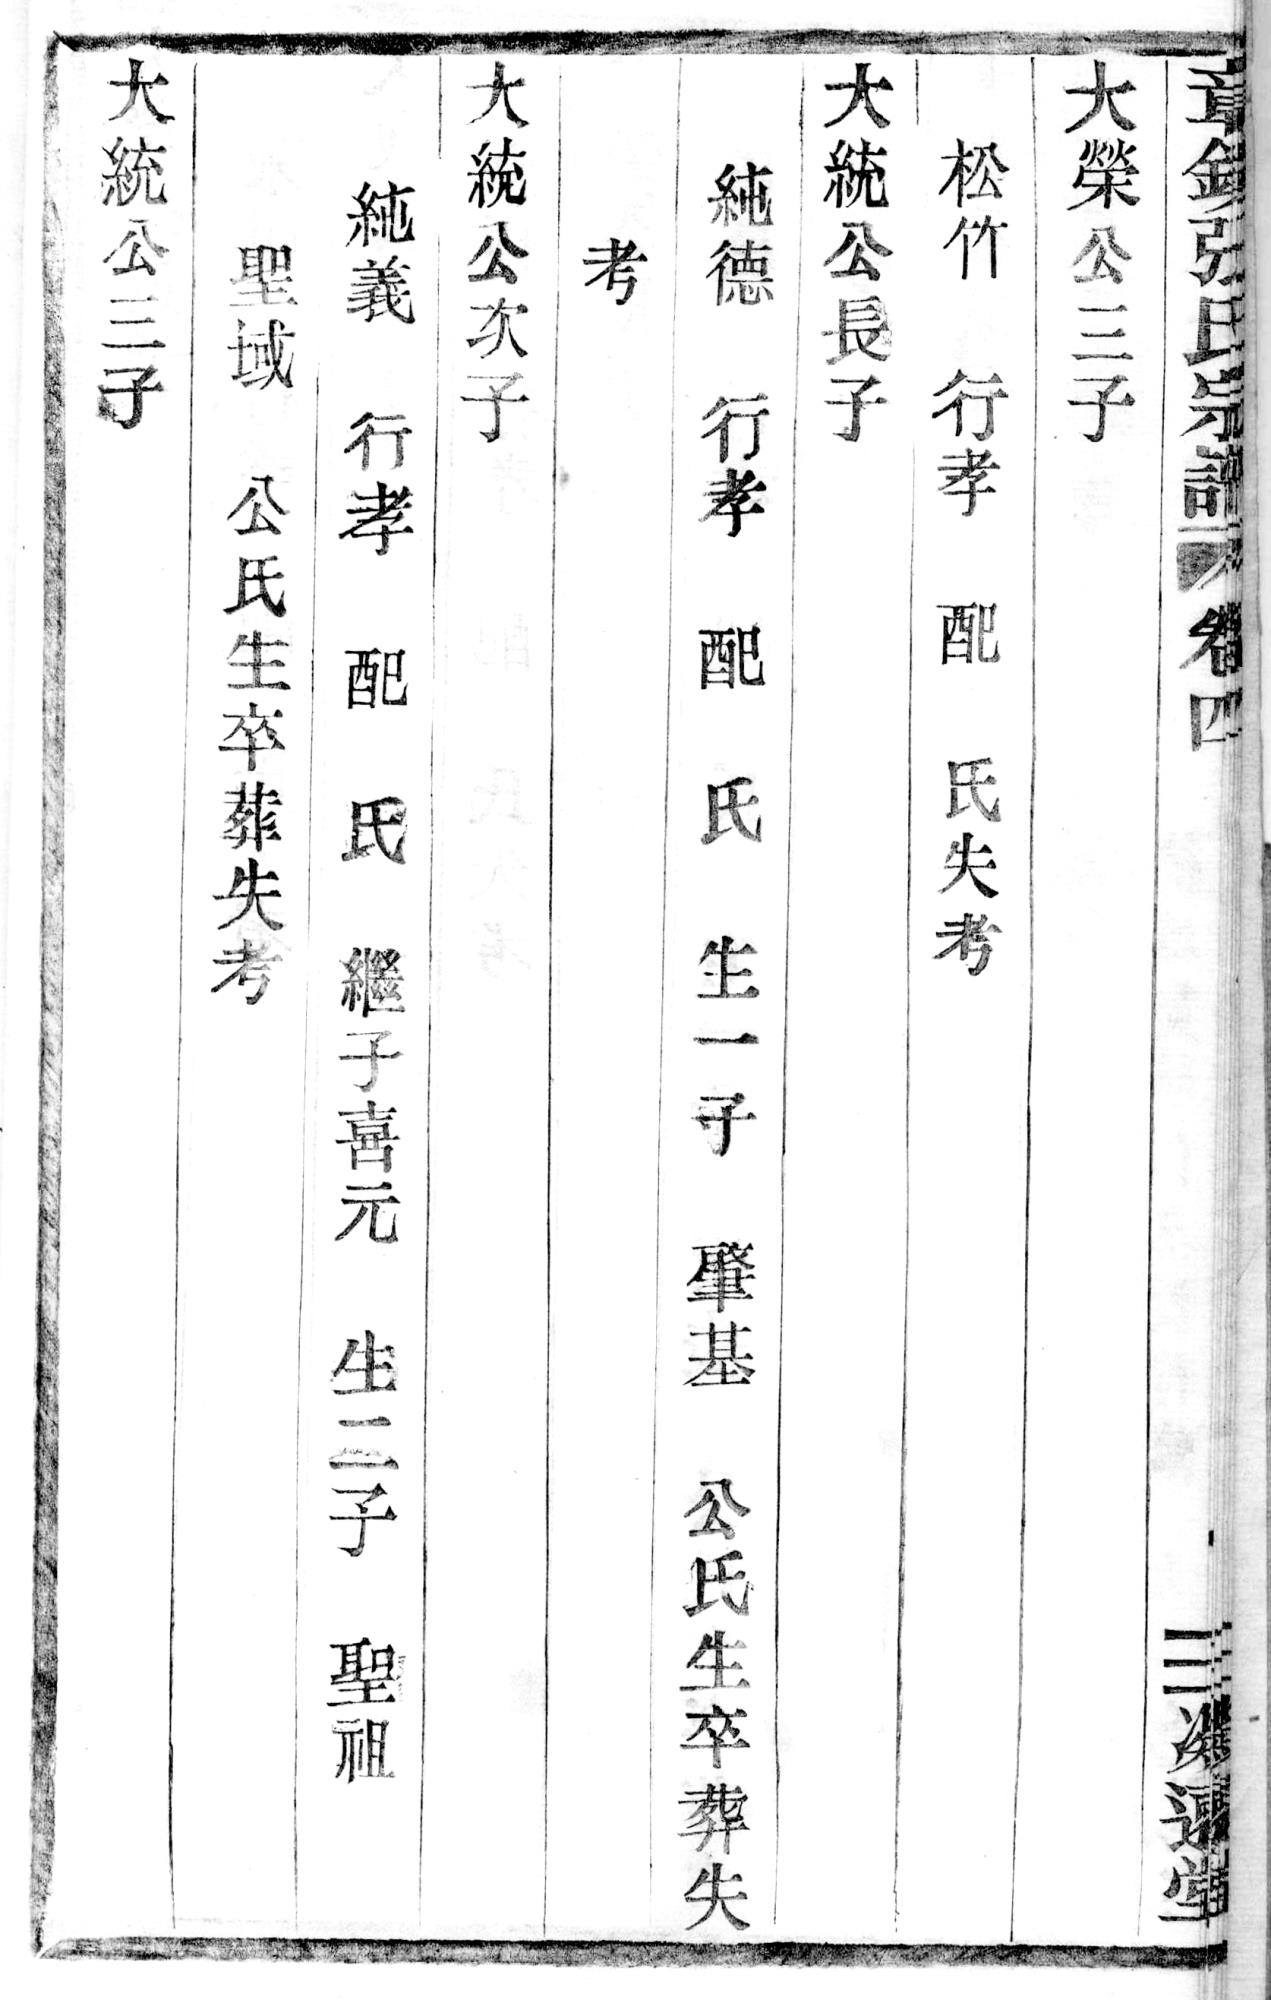 張氏宗譜 卷四
大榮公三子
松竹 行孝 配 氏失考
大統公長子
純德 行孝 配 氏 生一子 肇基 公氏生卒葬失
考
大統公次子
純義 行孝 配 氏 繼子喜元 生二子 聖祖
聖域 公氏生卒葬失考
大統公三子